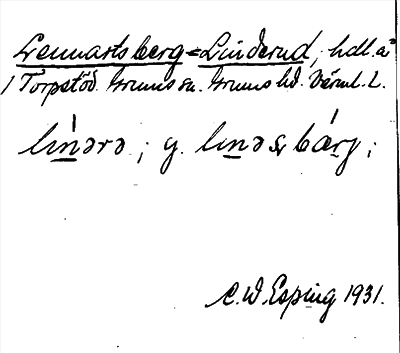 Lennartsberg = Linderud, hdl. a
1 Torpstöd. Grums sn. Grums hd. Värml. l.
lìnərə; y. linəsbárg;
C. W. Esping 1931.